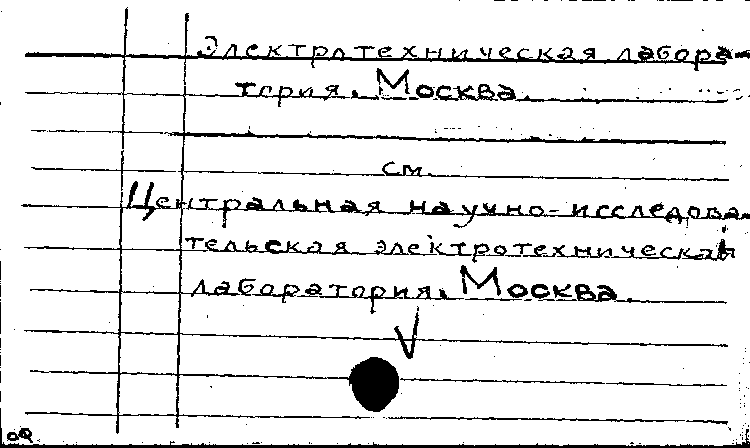 Электротехническая лабора-
тория. Москва.
см.
Центральная научно-исследова-
тельская электротехническая
лаборатория. Москва.